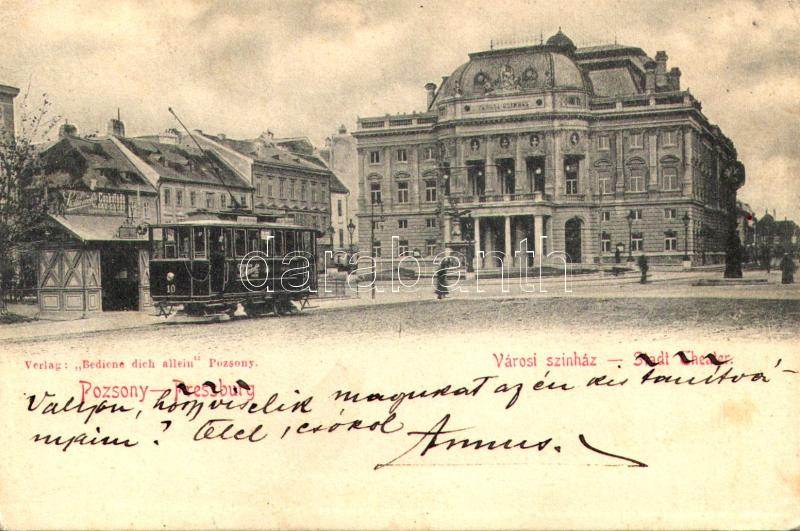 VÁROSI SZINHÁZ
10
darabanth.com
Verlag: „Bediene dich allein" Pozsony.
Városi szinház — Stadt Theater.
Pozsony—Pressburg
Valjon, hogy viselik magukat az én kis tanítvá-
nyaim? Ölel, csókol Annus.